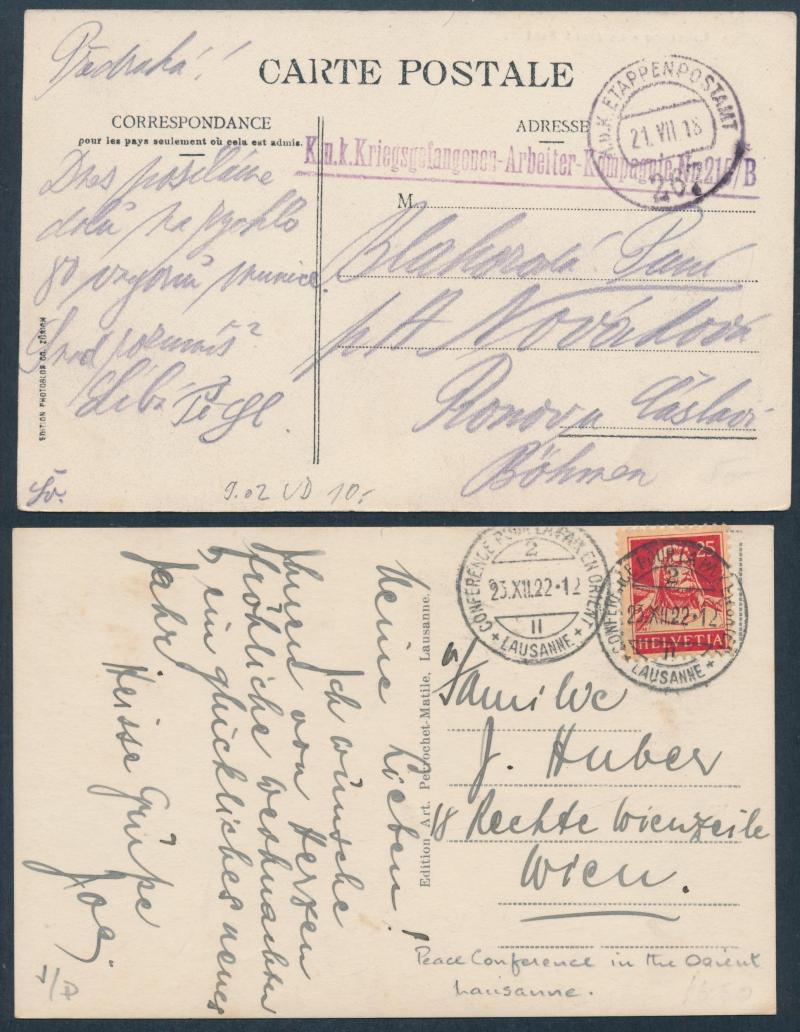 Předrahá!
CARTE POSTALE
CORRESPONDANCE
pour les pays seulement où cela est admis.
ADRESSE
K.u.k. ETAPPENPOSTAMT
21.VII.18
267
K.u.k. Kriegsgefangenen-Arbeiter-Kompagnie Nr. 21 /B
M.
Dnes posíláme
dolů na rychlo
80 vagonů munice.
Snad poznáš?
Líbá
EDITION PHOTOGLOB CO. ZÜRICH
Paní
Nováková
Ronov u Čáslavi
Böhmen
9.02 VD 10.-
CONFERENCE POUR LA PAIX EN ORIENT
2
23.XII.22-12
II
+ LAUSANNE +
25
HELVETIA
CONFERENCE POUR LA PAIX EN ORIENT
2
23.XII.22-12
II
LAUSANNE +
Meine Lieben!
Ich wünsche
Ihnen von Herzen
fröhliche Weihnachten
u. ein glückliches neues
Jahr.
Heisse Grüße
Joe.
Edition Art. Perrochet-Matile, Lausanne.
Familie
J. Huber
18 Rechte Wienzeile
Wien.
Peace Conference in the Orient
Lausanne.